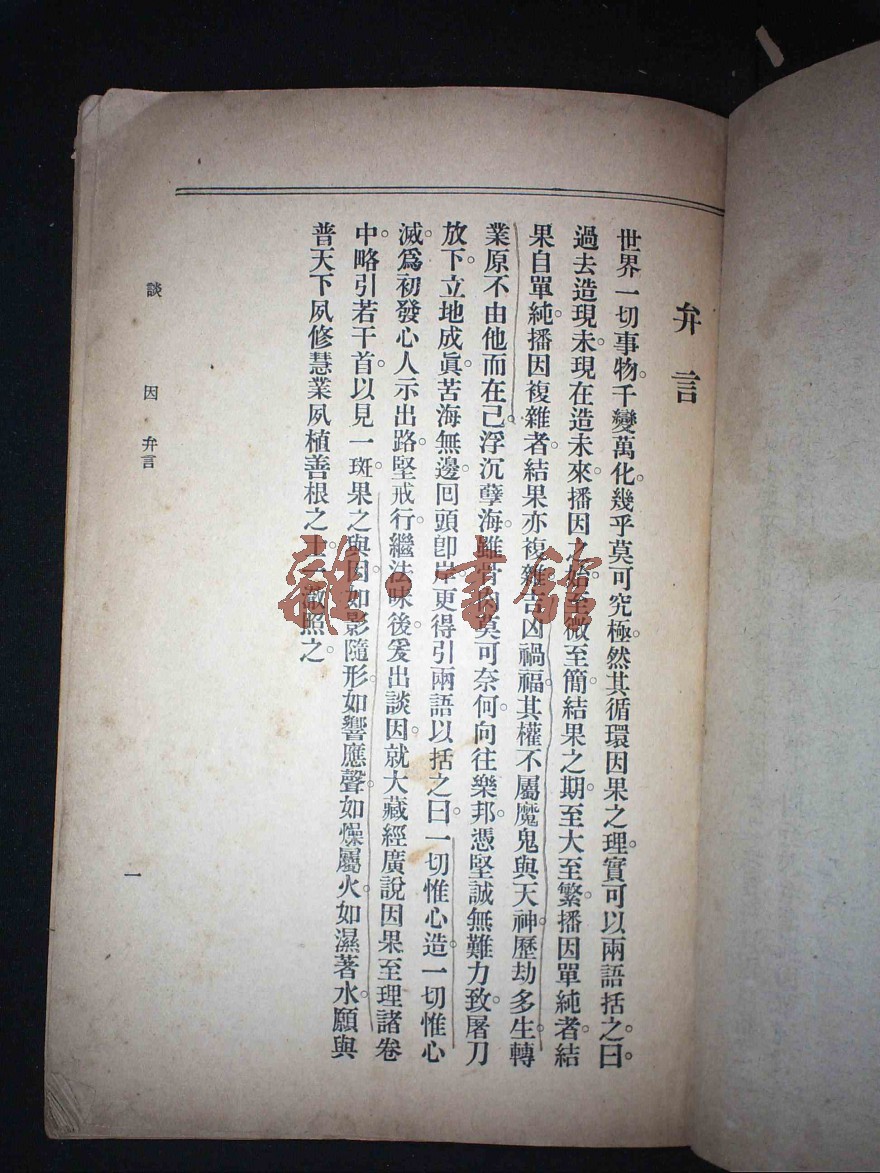 弁言
世界一切事物。千變萬化。幾乎莫可究極。然其循環因果之理。實可以兩語括之。曰。
過去造現未。現在造未來。播因之始。至微至簡。結果之期。至大至繁。播因單純者。結
果自單純。播因複雜者。結果亦複雜。吉凶禍福。其權不屬魔鬼與天神。歷劫多生。轉
業原不由他而在己。浮沉孽海。雖骨肉莫可奈何。向往樂邦。憑堅誠無難力致。屠刀
放下。立地成眞。苦海無邊。回頭即岸。更得引兩語以括之。曰。一切惟心造。一切惟心
滅。爲初發心人示出路。堅戒行。繼法味後。爰出談因。就大藏經廣說因果至理諸卷
中。略引若干首。以見一斑。果之與因。如影隨形。如響應聲。如燥屬火。如濕著水。願與
普天下夙修慧業夙植善根之士。一澈照之。
談因 弁言
一
雜·書館